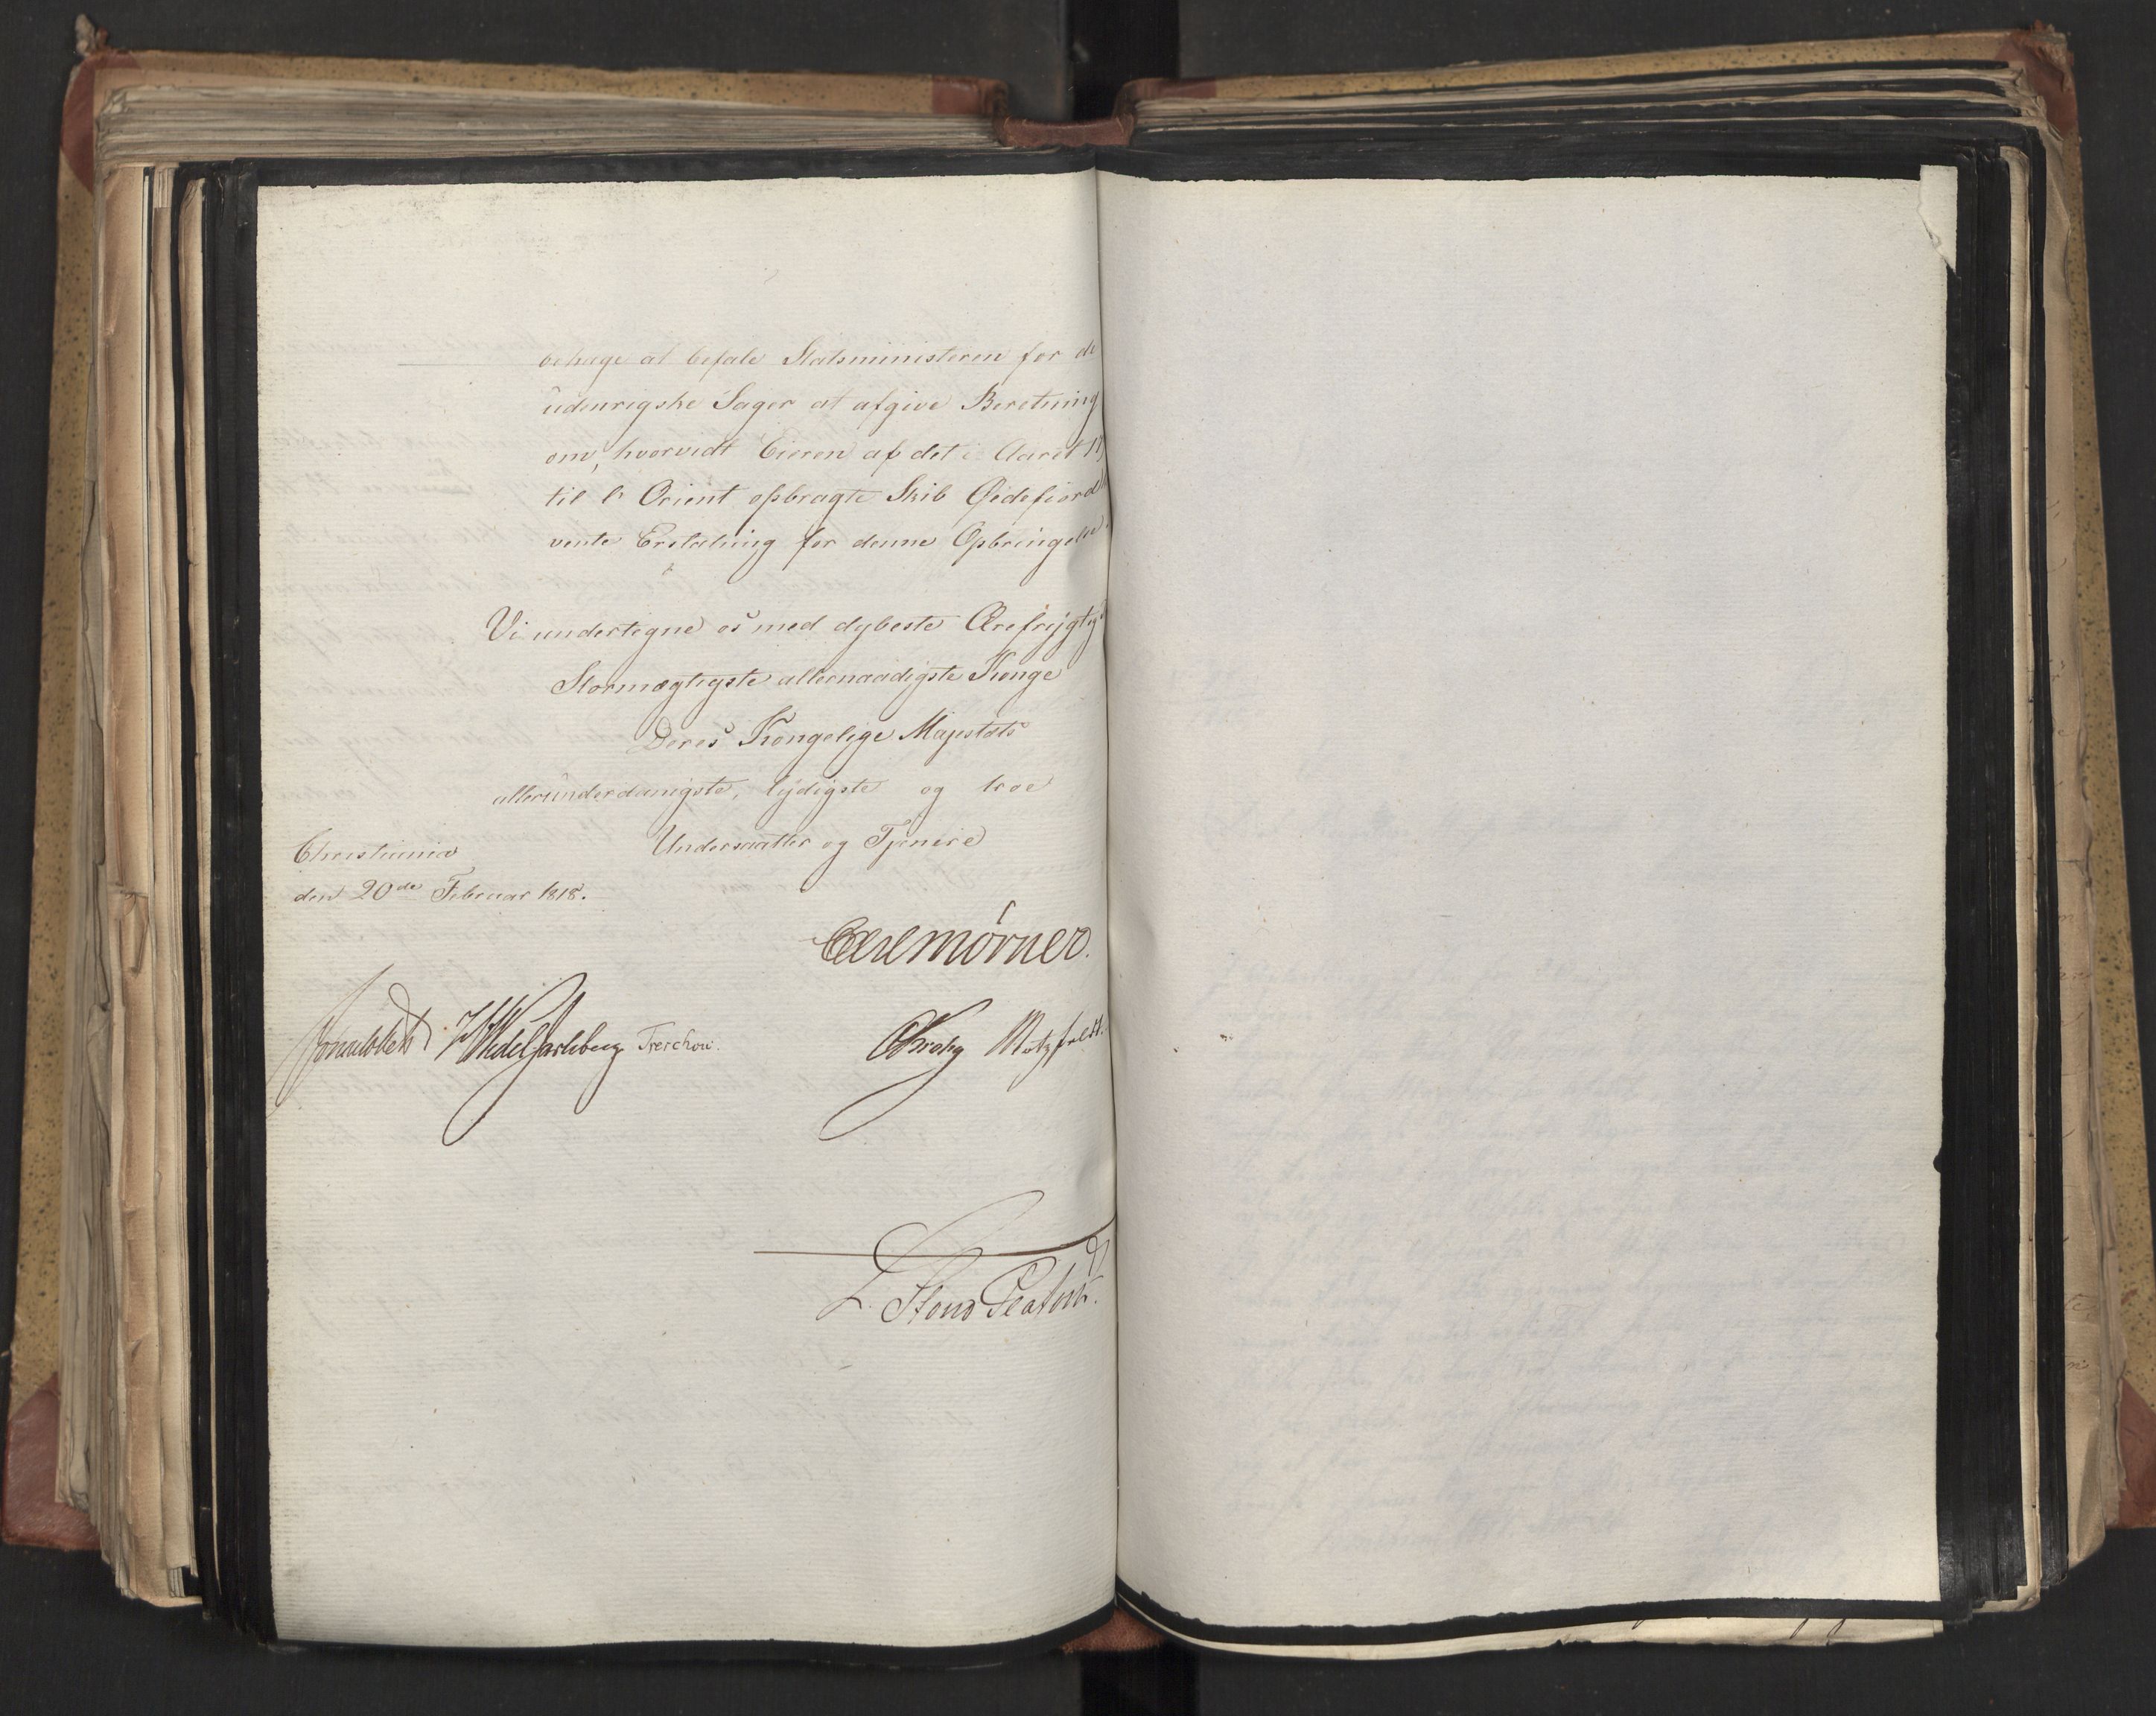 behage at befale Statsministeren for de
udenrigske Sager at afgive Beretning
om, hvorvidt Eieren af det i Aaret
til l'Orient opbragte Skib Eidefjord
vente Erstatning for denne Opbringelse.
Vi undertegne os med dybeste Ærefrygt
Stormægtigste allernaadigste Konge
Deres Kongelige Majestæts
allerunderdanigste, lydigste og troe
Undersaatter og Tjenere
Christiania
den 20de Februar 1818.
Carl Mörner.
Sommelfeldt HWedel Jarlsberg Treschow. CKrohg Motzfeldt.
L. Stoud Platou.